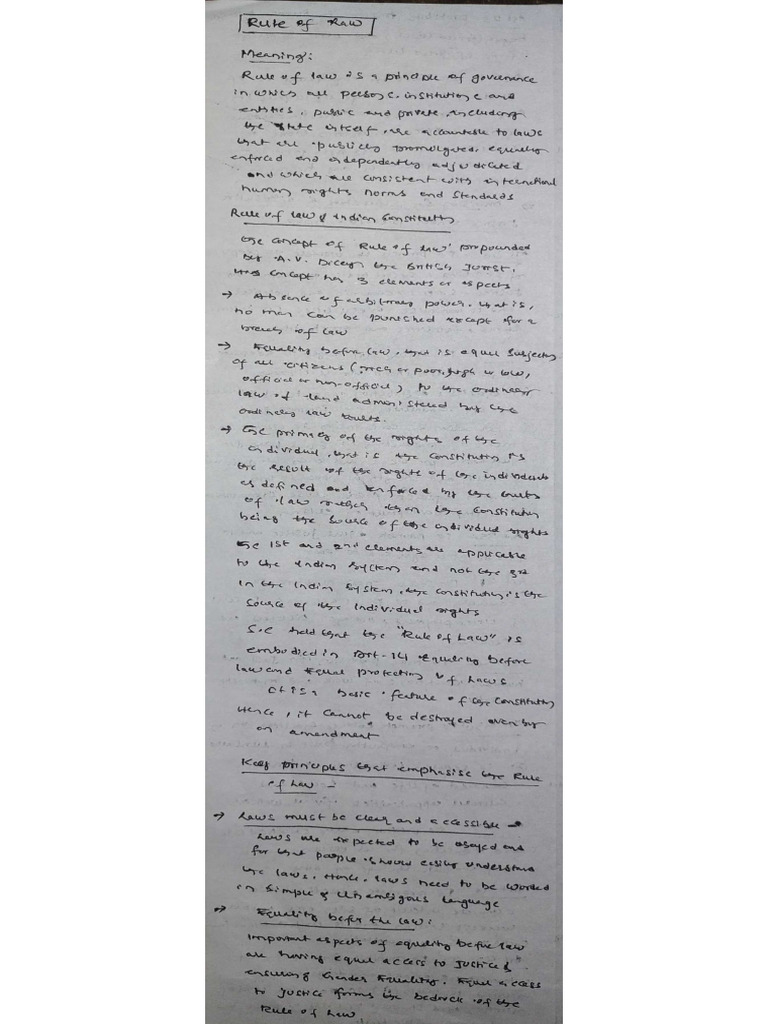 Rule of Law
Meaning:
Rule of law is a principle of governance
in which all persons, institutions and
entities, public and private, including
the state itself, are accountable to laws
that are publicly promulgated, equally
enforced and independently adjudicated
and which are consistent with international
human rights norms and standards
Rule of law & Indian Constitution
The concept of Rule of law' propounded
by A.V. Dicey the British Jurist.
concept has 3 elements or aspects
→ Absence of arbitrary power, that is,
no man can be punished except for a
breach of law
→ Equality before law, that is equal subjection
of all citizens (rich or poor, high or low,
official or non-official) to the ordinary
law of land administered by the
ordinary law courts.
→ The primacy of the rights of the
individual, that is the constitution is
the result of the rights of the individuals
as defined and enforced by the courts
of law rather than the constitution
being the source of the individual rights
The 1st and 2nd elements are applicable
to the Indian System and not the 3rd
In the Indian System, the constitution is the
source of the Individual rights
S.C held that the "Rule of Law" is
embodied in Art-14 equality before
law and Equal protection of Laws
It is a basic feature of the Constitution
Hence, it cannot be destroyed even by
an amendment
Key principles that emphasise the Rule
of Law -
→ Laws must be clear and accessible
Laws are expected to be obeyed and
for that people should easily understand
the laws. Hence, laws need to be worded
in Simple & Unambigous language
→ Equality before the law:
Important aspects of equality before law
are having equal access to Justice &
ensuring Gender Equality. Equal access
to Justice forms the bedrock of the
Rule of Law